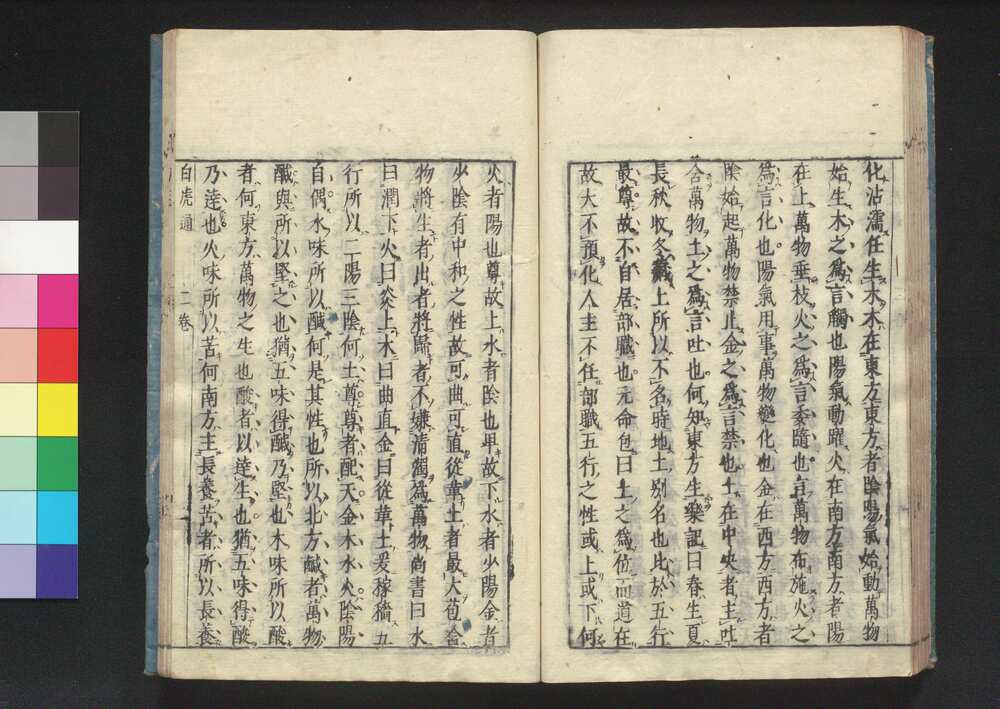 化沾濡任生木木在東方東方者陰陽氣始動萬物
始生木之爲言觸也陽氣動躍火在南方南方者陽
在上萬物垂枝火之爲言委隨也言萬物布施火之
爲言化也陽氣用事萬物變化也金在西方西方者
陰始起萬物禁止金之爲言禁也土在中央者主吐
含萬物土之爲言吐也何知東方生樂記曰春生夏
長秋收冬藏土所以不名時地土別名也比於五行
最尊故不自居部職也元命包曰土之爲位而道在
故大不預化人主不任部職五行之性或上或下何
火者陽也尊故上水者陰也卑故下水者少陽金者
少陰有中和之性故可曲可直從革土者最大苞含
物將生者出者將歸者不嫌清濁爲萬物尚書曰水
曰潤下火曰炎上木曰曲直金曰從革土爰稼穡五
行所以二陽三陰何土尊尊者配天金木水火陰陽
自偶水味所以鹹何是其性也所以北方鹹者萬物
鹹與所以堅之也猶五味得鹹乃堅也木味所以酸
者何東方萬物之生也酸者以達生也猶五味得酸
乃達也火味所以苦何南方主長養苦者所以長養
白虎通 二卷